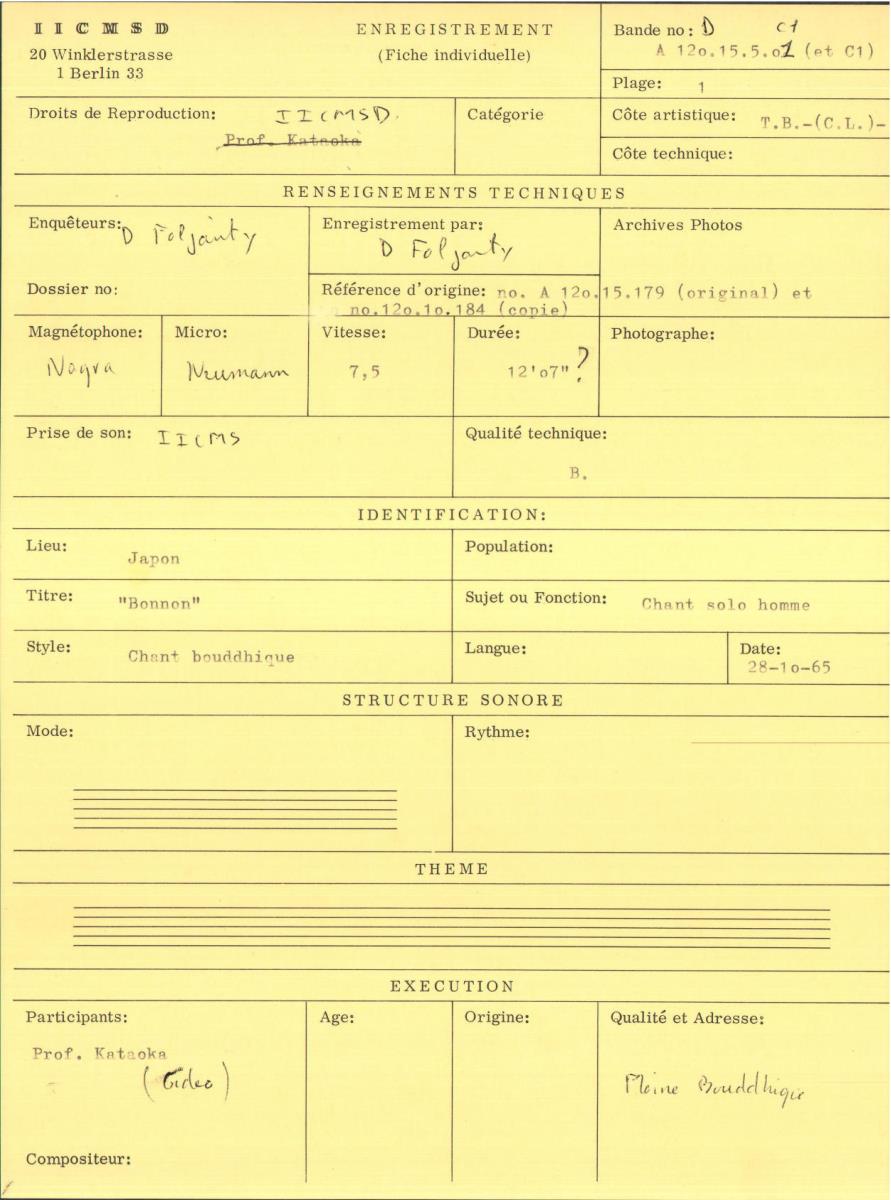 IICMSD
20 Winklerstrasse
1 Berlin 33
ENREGISTREMENT
(Fiche individuelle)
Bande no: D C1
A 12o.15.5.o1 (et C1)
Plage: 1
Droits de Reproduction: IICMSD.
Prof. Kataoka
Catégorie
Côte artistique: T.B.-(C.L.)-
Côte technique:
RENSEIGNEMENTS TECHNIQUES
Enquêteurs: D Foljanty
Enregistrement par:
D Foljanty
Archives Photos
Dossier no:
Référence d'origine: no. A 12o.15.179 (original) et
no.12o.1o.184 (copie)
Magnétophone:
Nagra
Micro:
Neumann
Vitesse:
7,5
Durée:
12'o7" ?
Photographe:
Prise de son: IICMS
Qualité technique:
B.
IDENTIFICATION:
Lieu:
Japon
Population:
Titre:
"Bonnon"
Sujet ou Fonction: Chant solo homme
Style:
Chant bouddhique
Langue:
Date:
28-1o-65
STRUCTURE SONORE
Mode:
Rythme:
THEME
EXECUTION
Participants:
Prof. Kataoka
Age:
Origine:
Qualité et Adresse:
Moine Bouddhique
Compositeur: